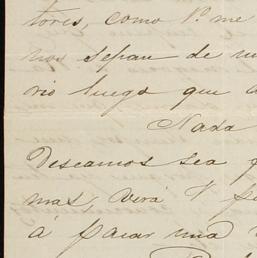 tores, como Pa. me
nos sepan de
rio luego que
Nada
Deseamos sea
mas, verá V
á pasar una